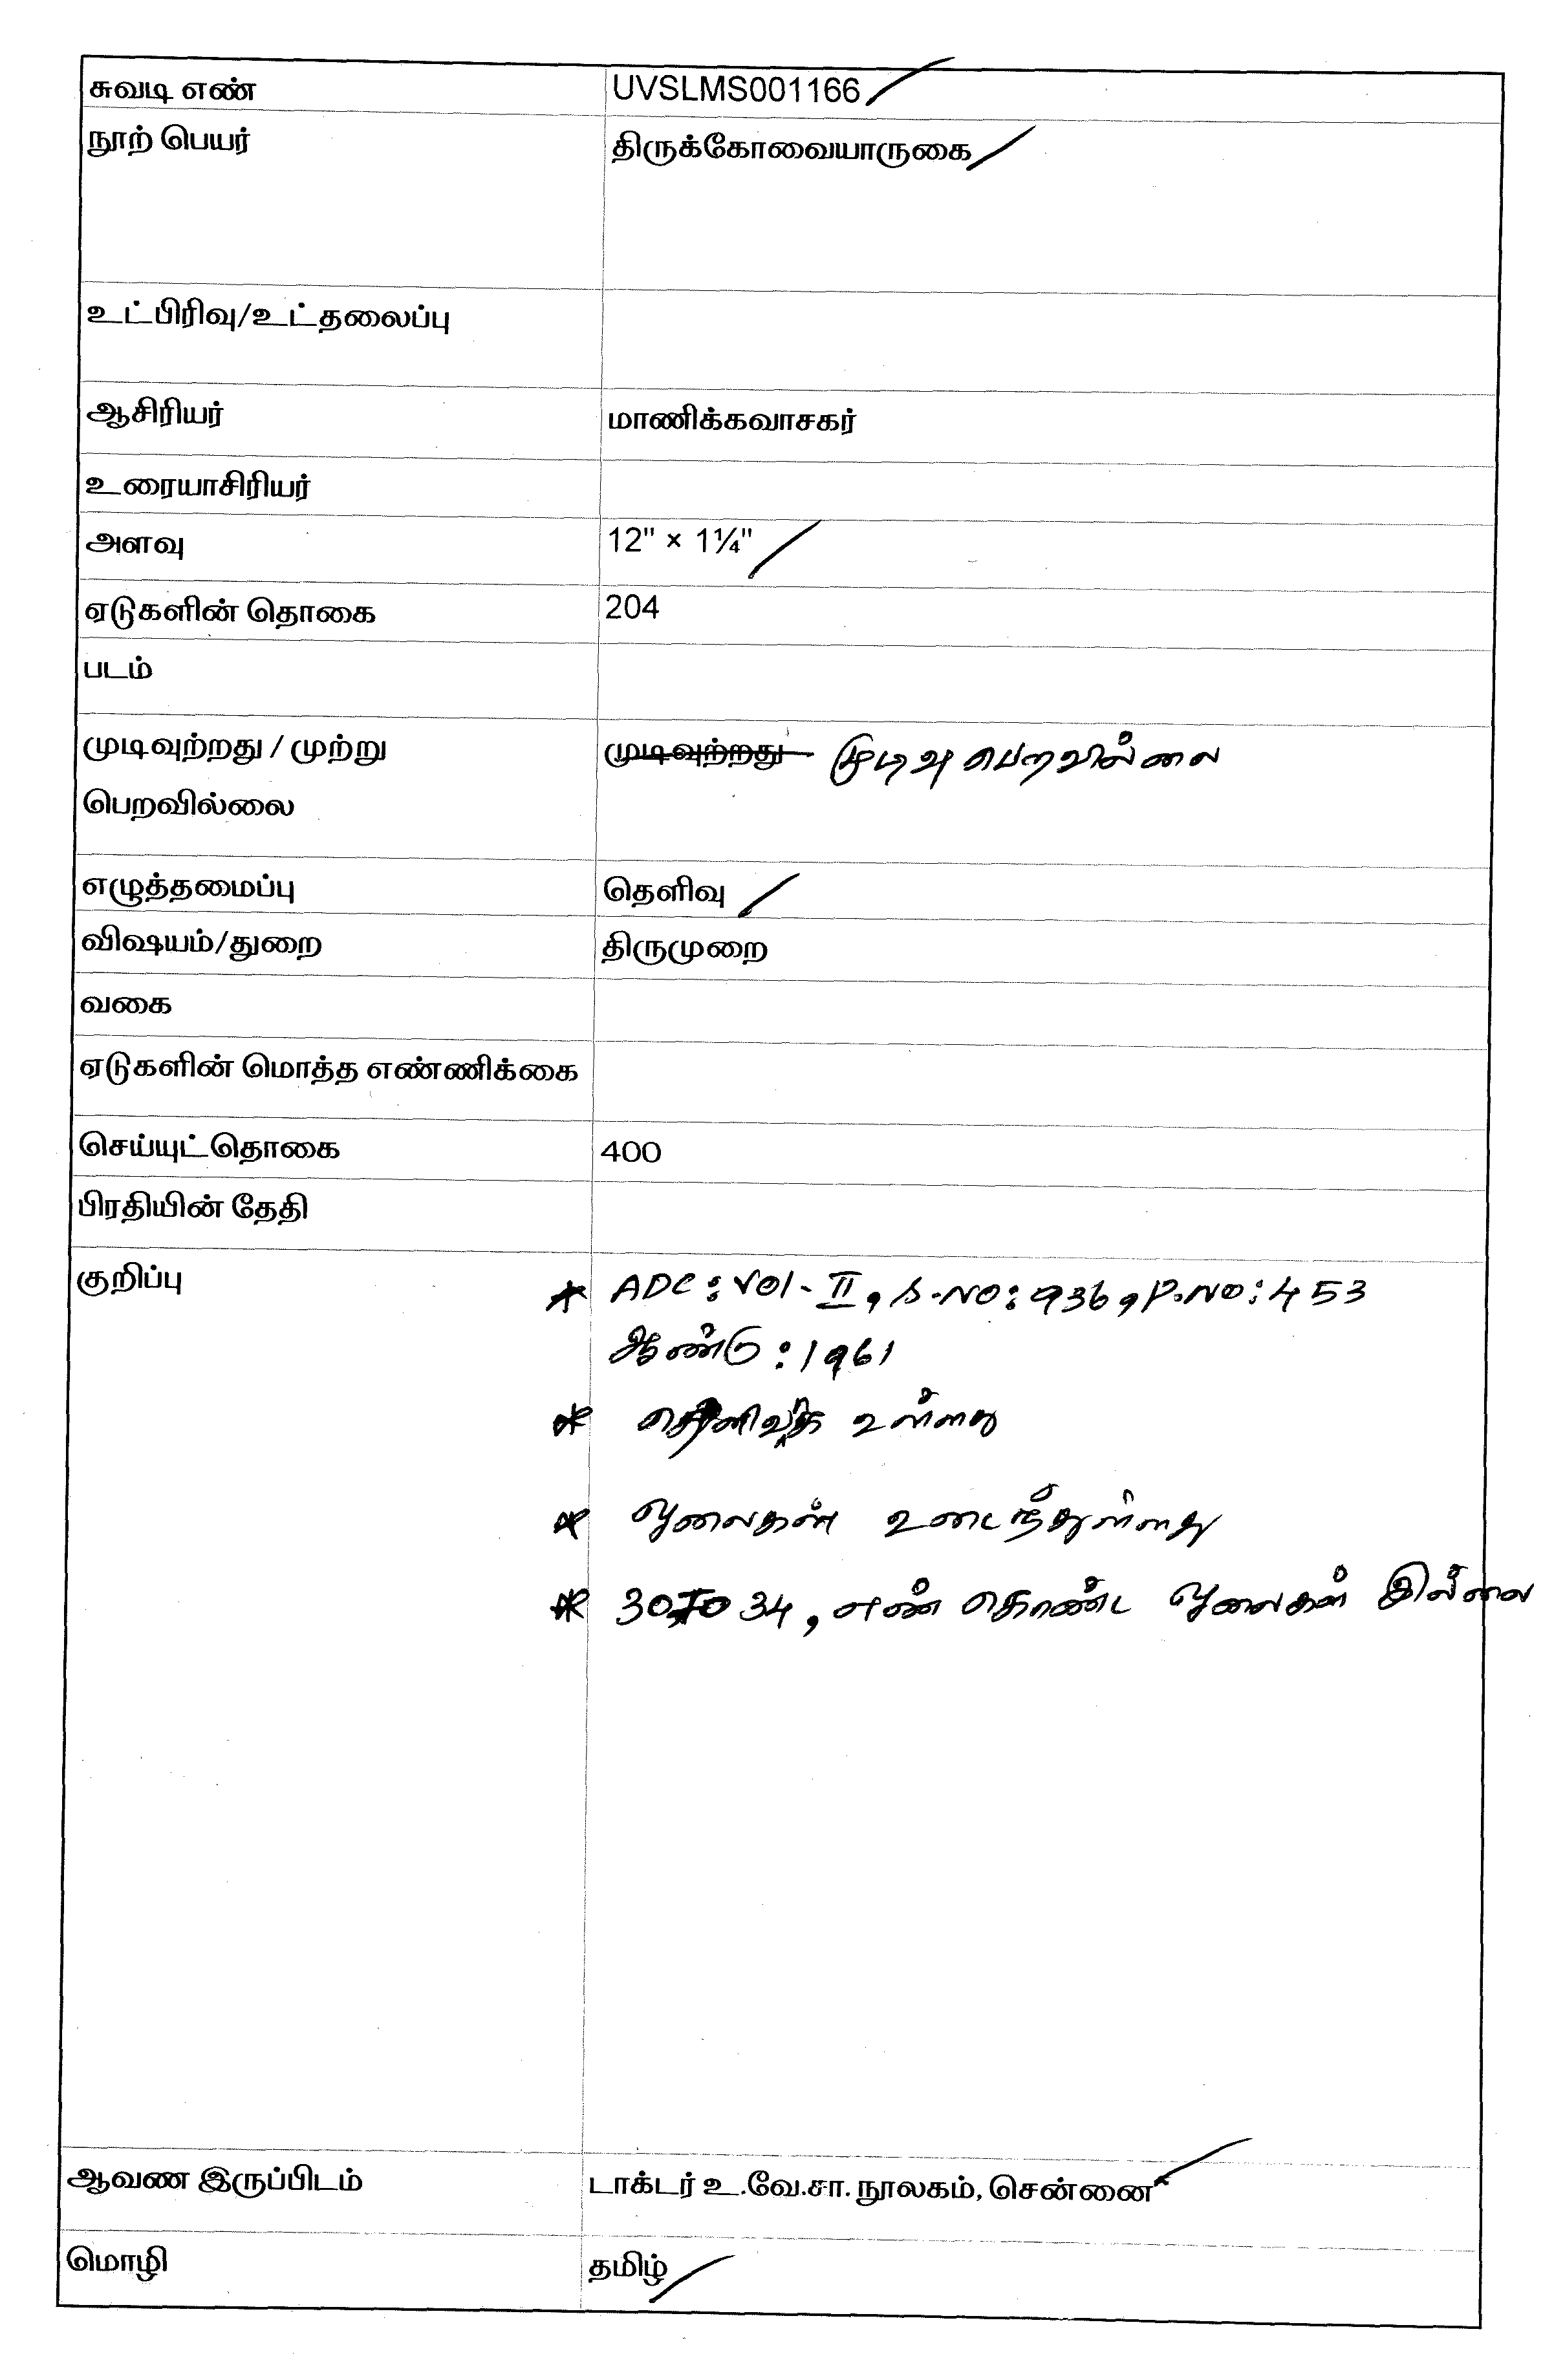 சுவடி எண் UVSLMS001166
நூற் பெயர் திருக்கோவையாருகை
உட்பிரிவு/உட்தலைப்பு
ஆசிரியர் மாணிக்கவாசகர்
உரையாசிரியர்
அளவு 12" × 1¼"
ஏடுகளின் தொகை 204
படம்
முடிவுற்றது / முற்று முடிவுற்றது முடிவு பெறவில்லை
பெறவில்லை
எழுத்தமைப்பு தெளிவு
விஷயம்/துறை திருமுறை
வகை
ஏடுகளின் மொத்த எண்ணிக்கை
செய்யுட்தொகை 400
பிரதியின் தேதி
குறிப்பு * ADC : Vol - II, S.NO: 936, P.NO: 453
ஆண்டு : 1961
* உள்ளது
* ஓலைகள் உடைந்துள்ளது
* 30 TO 34, எண் கொண்ட ஓலைகள் இல்லை
ஆவண இருப்பிடம் டாக்டர் உ.வே.சா. நூலகம், சென்னை
மொழி தமிழ்